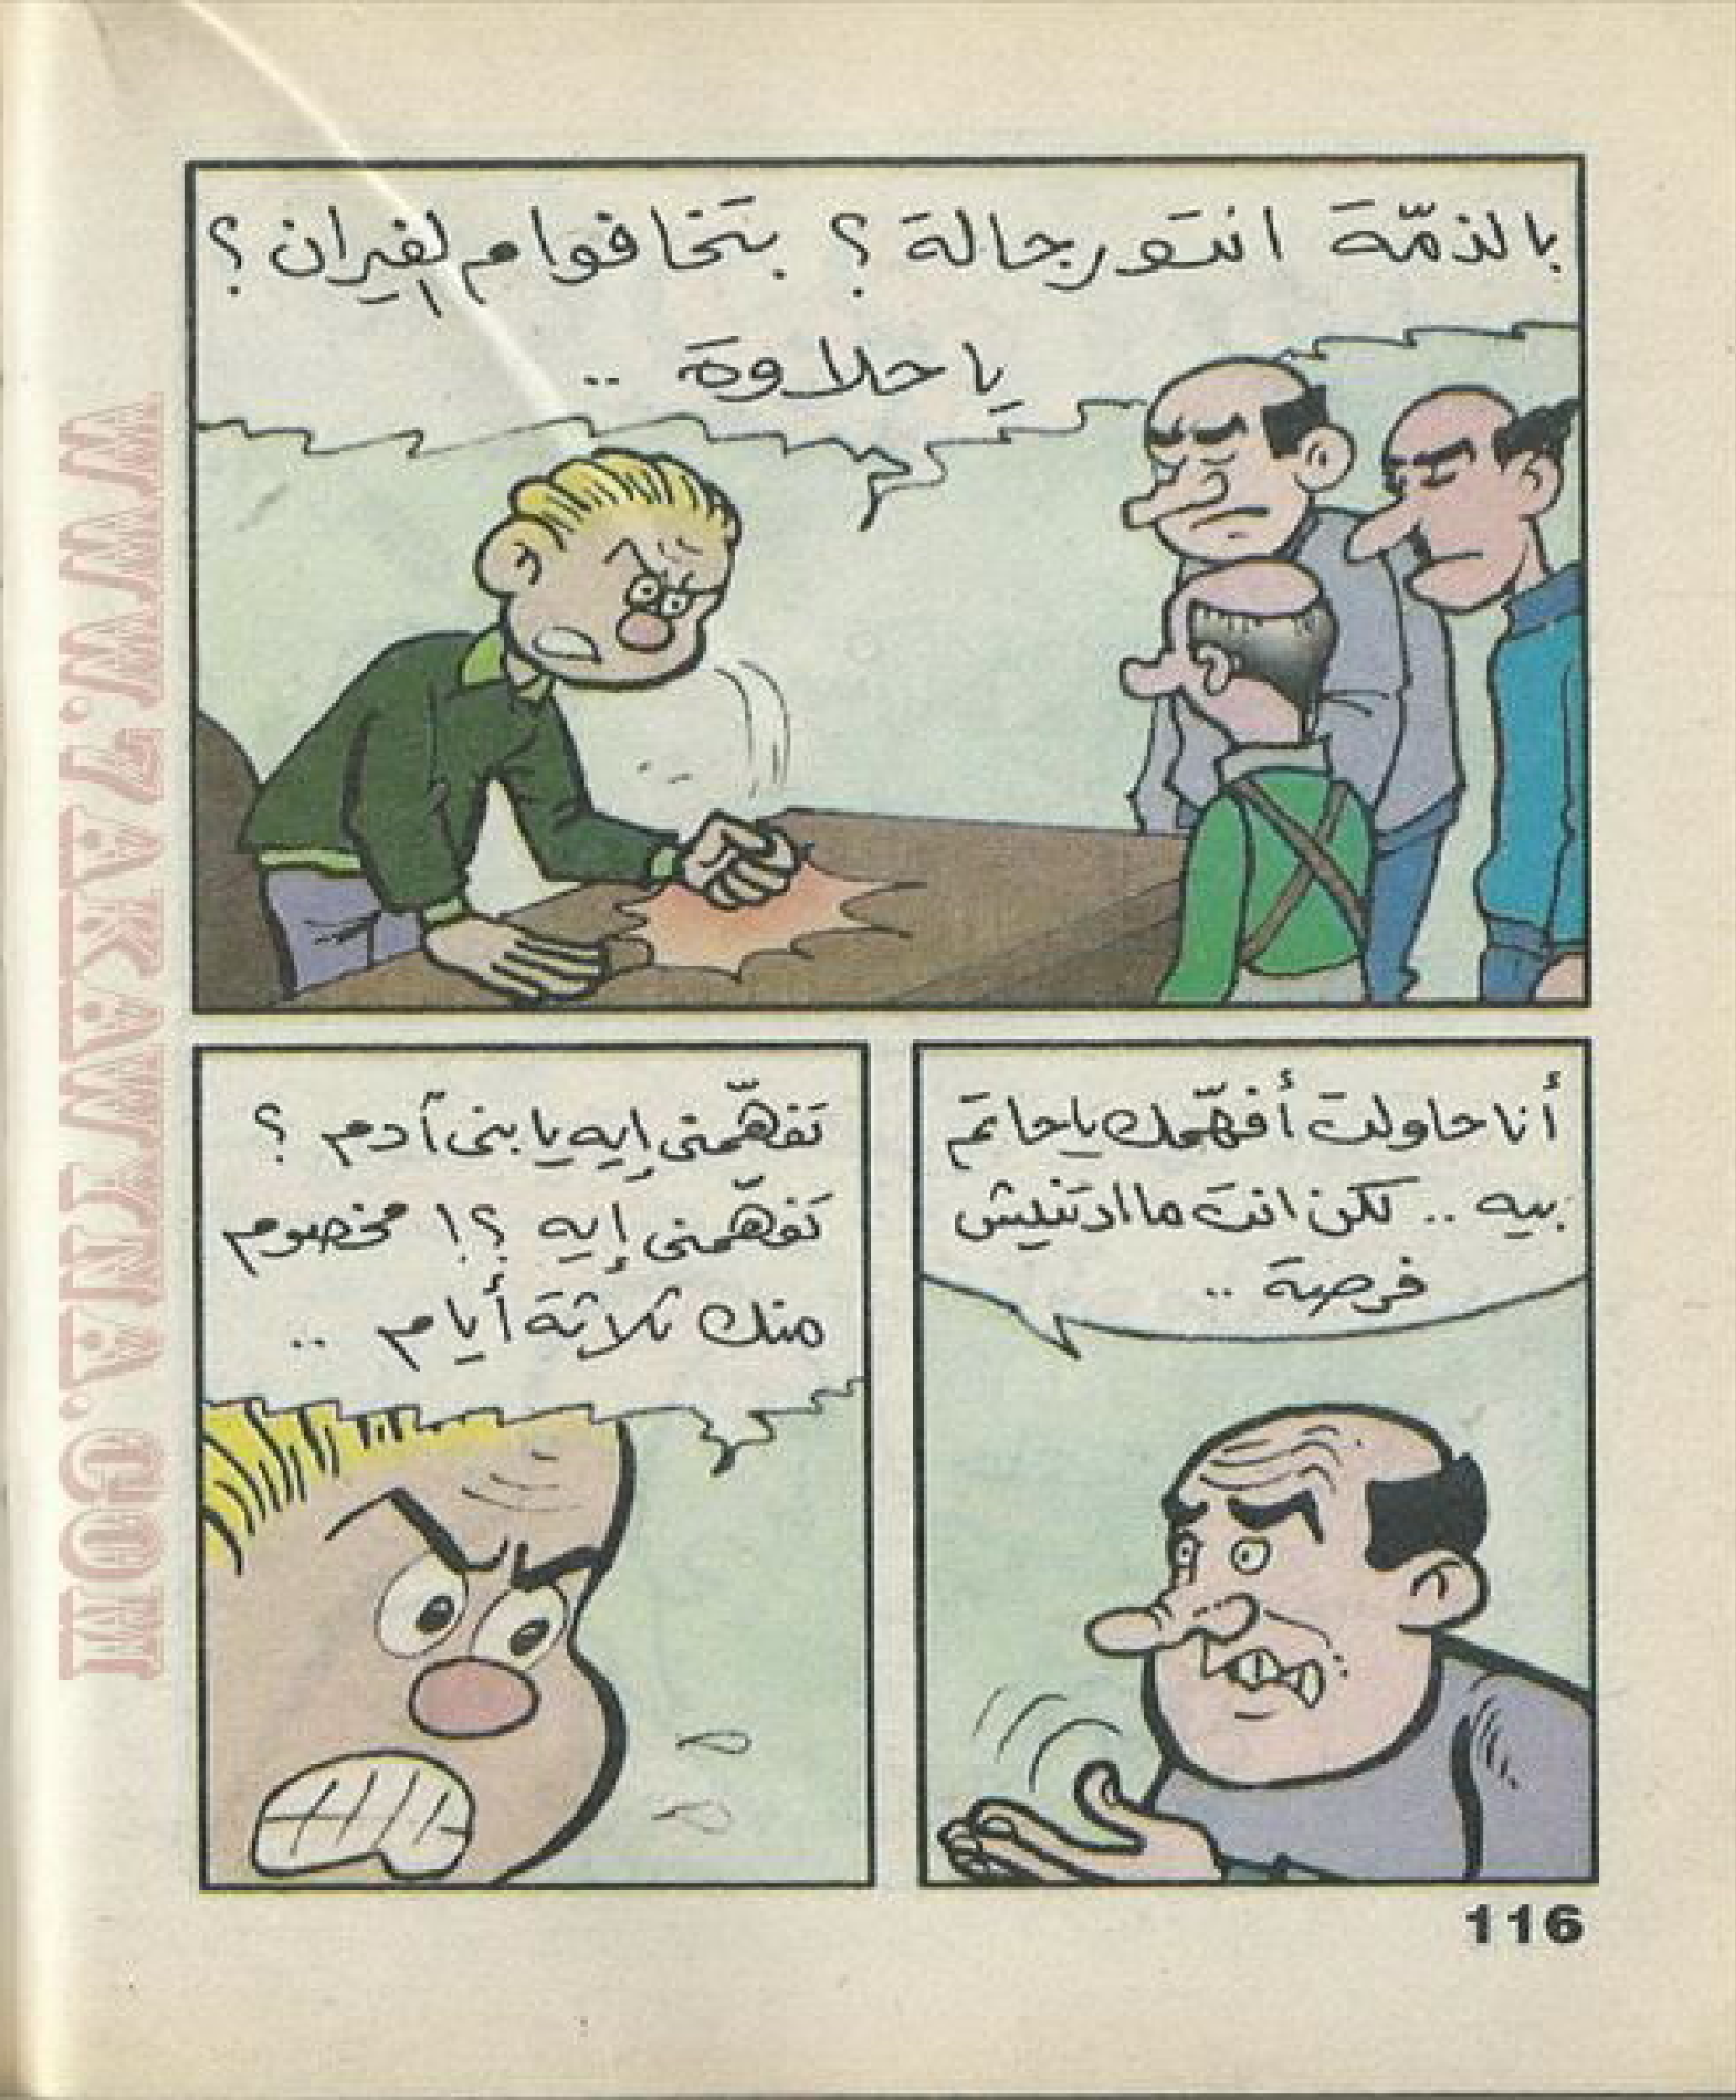 بالذمّة انتو رجالة ؟ بتخافوا م لفيران ؟
يا حلاوة ..
أنا حاولت أفهّمك يا حاتم
بيه .. لكن انت ما ادتنيش
فرصة ..
تفهّمنى إيه يا بنى آدم ؟
تفهّمنى إيه ؟! مخصوم
منك ثلاثة أيام ..
116
WWW.7AKAWTTNA.COM